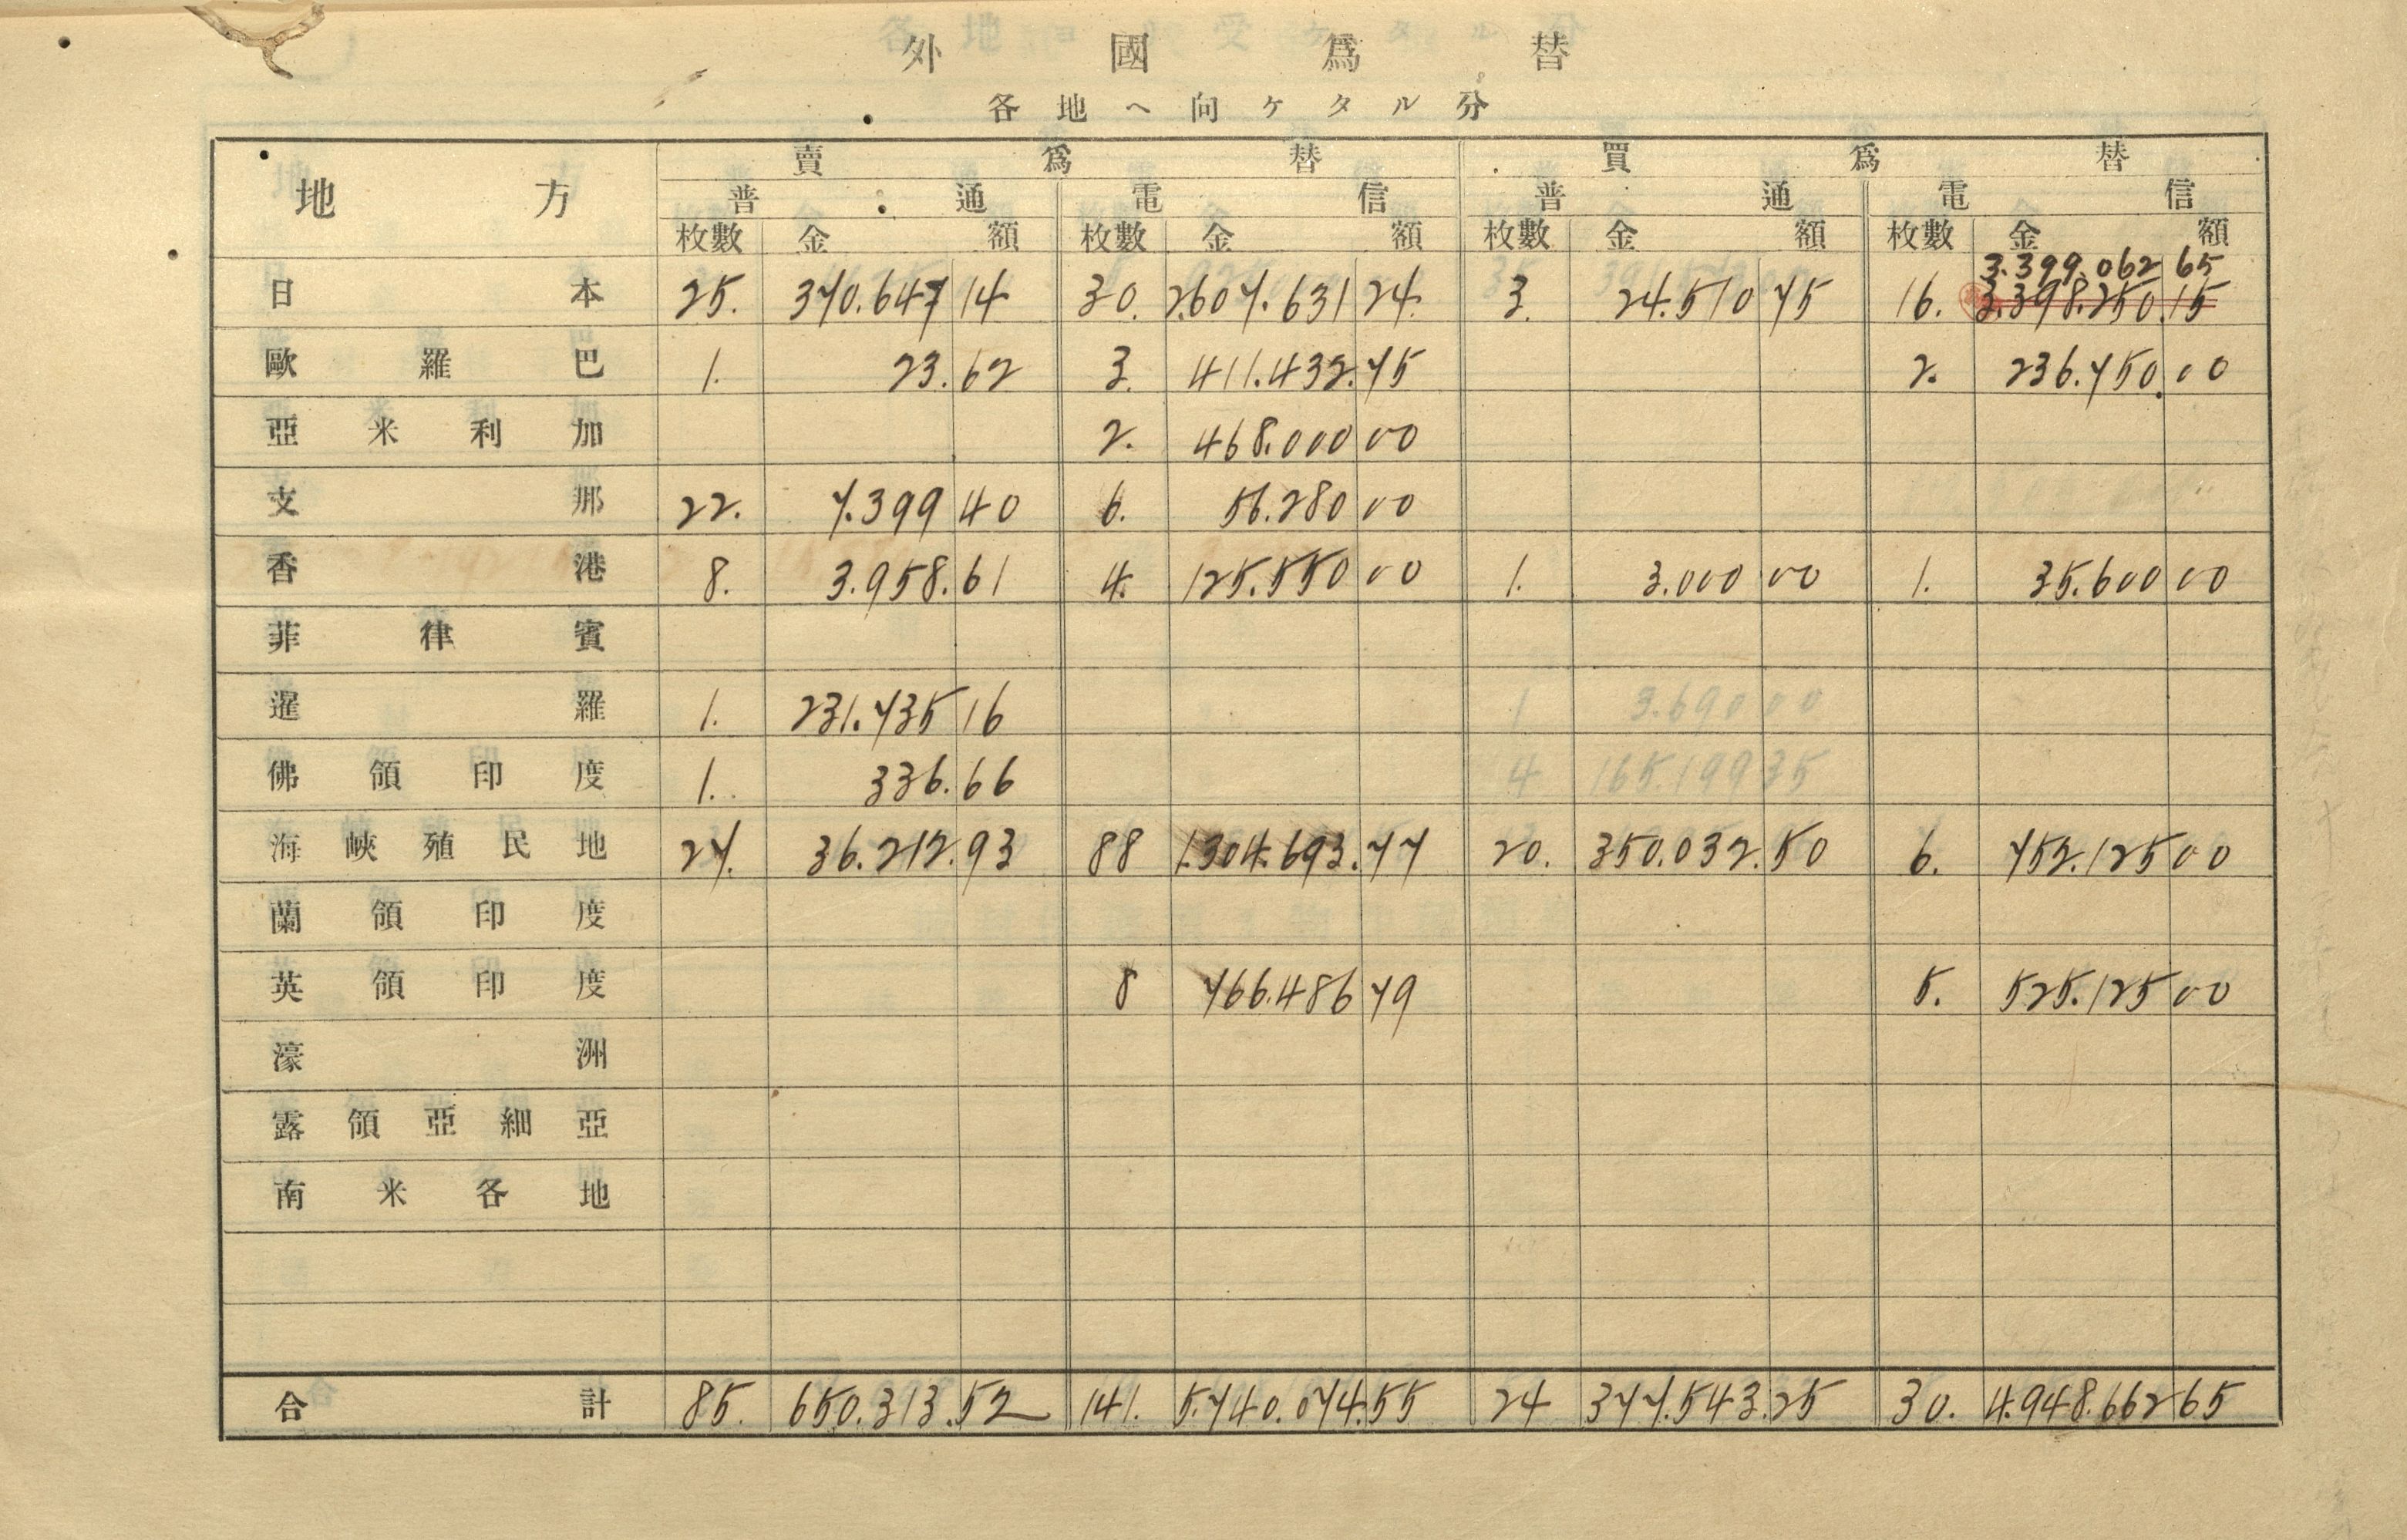 外國爲替
各地ヘ向ケタル分
地方 賣爲替 買爲替
普通 電信 普通 電信
枚數 金額 枚數 金額 枚數 金額 枚數 金額
3.399.062 65
日本 25. 370.647 14 30. 2.607.631 24. 3. 24.510 75 16. 3.398.250.15
歐羅巴 1. 23.62 3. 411.432.75 2. 236.750.00
亞米利加 2. 468.000 00
支那 22. 7.399 40 6. 56.280 00
香港 8. 3.958.61 4. 125.550 00 1. 3.000 00 1. 35.600 00
菲律賓
暹羅 1. 231.735 16
佛領印度 1. 336.66
海峽殖民地 27. 36.212.93 88 1.304.693.77 20. 350.032.50 6. 752.125 00
蘭領印度
英領印度 8 766.486 79 5. 525.125 00
濠洲
露領亞細亞
南米各地
合計 85. 650.313.52 141. 5.740.074.55 24 377.543.25 30. 4.948.662 65